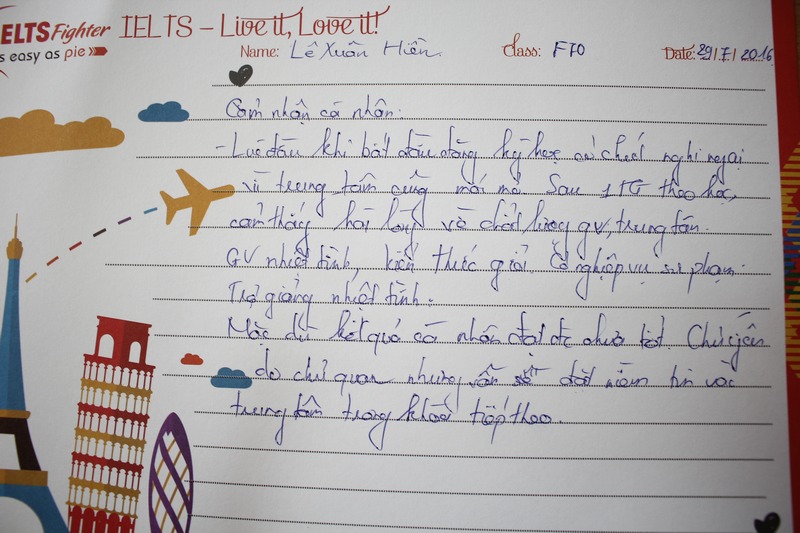 IELTS Fighter
as easy as pie
IELTS – Live it, Love it!
Name: Lê Xuân Hiền. Class: F70 Date: 29/7/2016
Cảm nhận cá nhân:
- Lúc đầu khi bắt đầu đăng ký học có chút nghi ngại
vì trung tâm cũng mới mở. Sau 1 TG theo học,
cảm thấy hài lòng về chất lượng gv, trung tâm.
GV nhiệt tình, kiến thức giỏi. Có nghiệp vụ sư phạm.
Trợ giảng nhiệt tình.
Mặc dù kết quả cá nhân đạt đc chưa tốt. Chủ yếu
do chủ quan nhưng vẫn sẽ đặt niềm tin vào
trung tâm trong khoá tiếp theo.